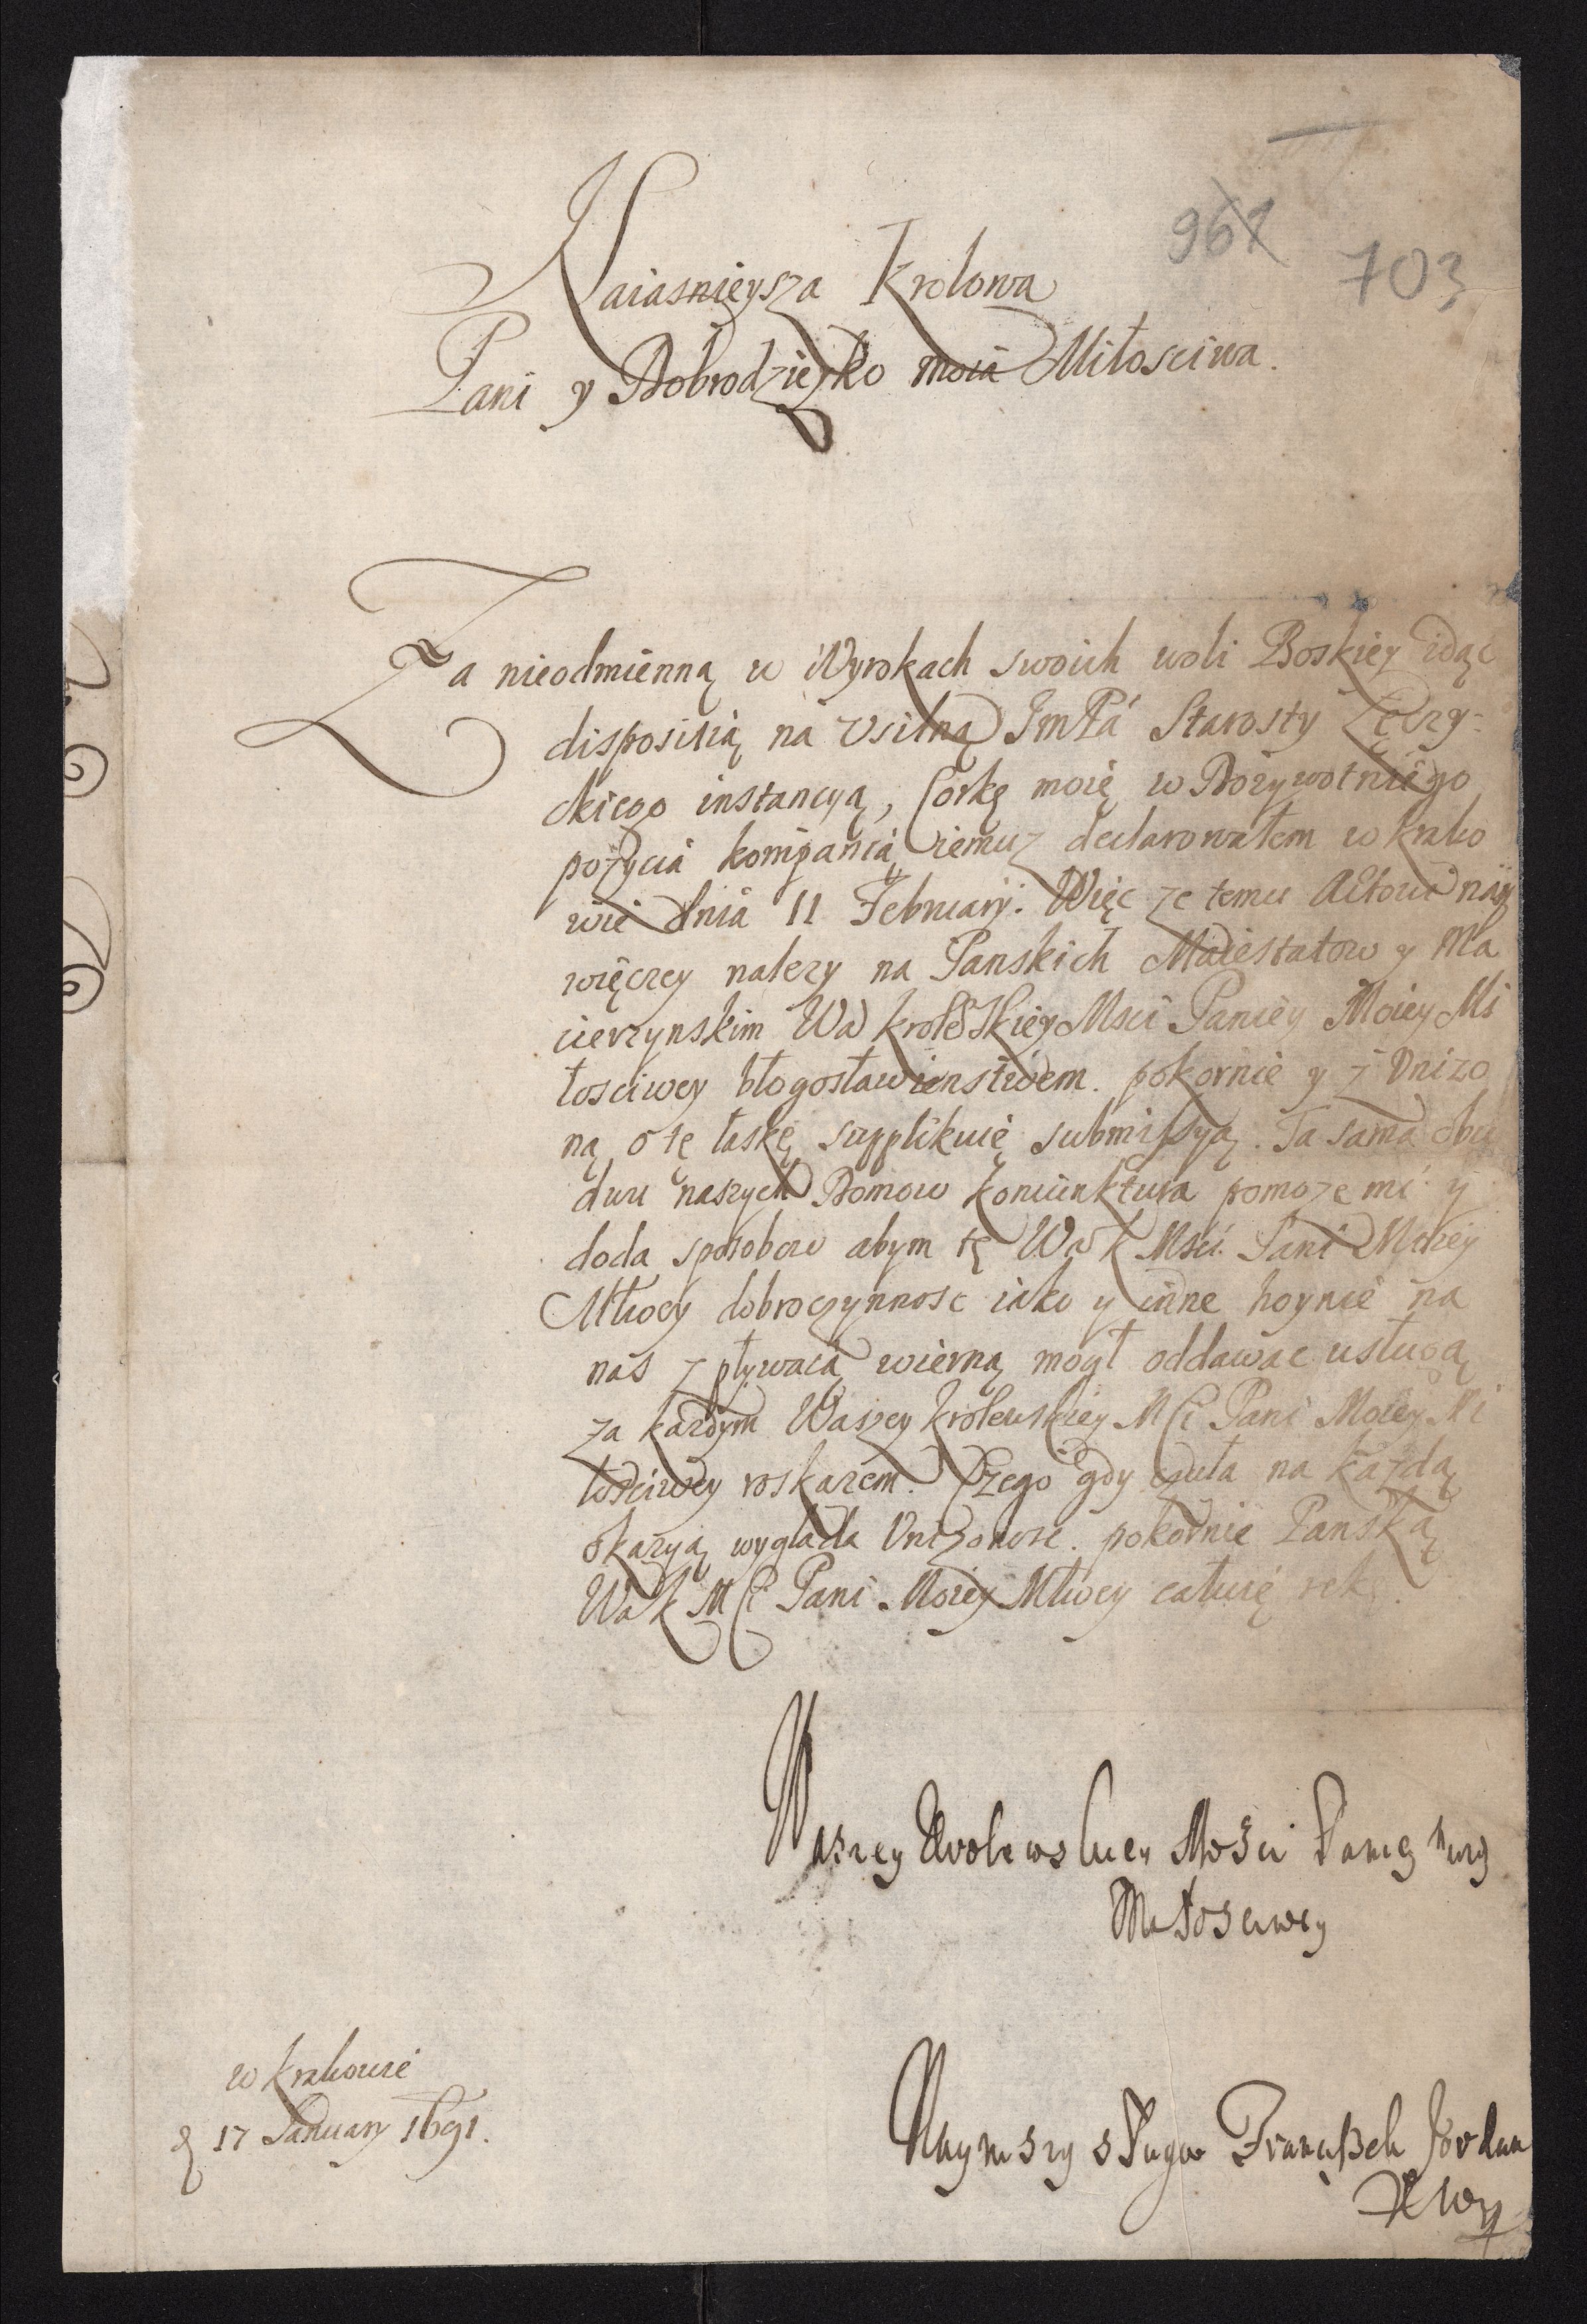 961
703
Naiasnieysza Krolowa
Pani y Dobrodzieyko moia Miłosciwa.
Za nieodmienną w Wyrokach swoich woli Boskiey idąc
disposicią na Vsilną ImPá Starosty Łęczy-
ckiego instancyą, Corkę moię w Dozywotniego
pozycia kompanią iemuz declarowałem w krako
wie dnia 11 Februarij. Więc ze temu Aktowi nay
więczey nalezy na Panskich Maiestatow y Ma
cierzynskim Wa krolewskiey Msci Paniey Moiey Mi
łosciwey błogosławienstwem. pokornie y z Vnizo
ną o tę łaskę supplikuię submissyą. Ta sama obu
dwu naszych Domow koniunktura pomoze mi y
doda sposobow abym tę Wa K Msci Pani Moiey
Młwey dobroczynnosc iako y inne hoynie na
nas zpływaią wierną mogł oddawac usługą
za kazdym Waszey krolewskiey MCi Pani Moiey Mi
łosciwey roskazem. Czego gdy czuła na kazdą
okazyą wyglada Vnizonosc. pokornie Panską
Wa K MCi Pani Moiey Młwey całuię rękę.
Waszey Krolewskiey Mosci Paniey mey
Miłosciwey
Naynizszy sługa Franciszek Jordan
w krakowie
d 17 January 1691.